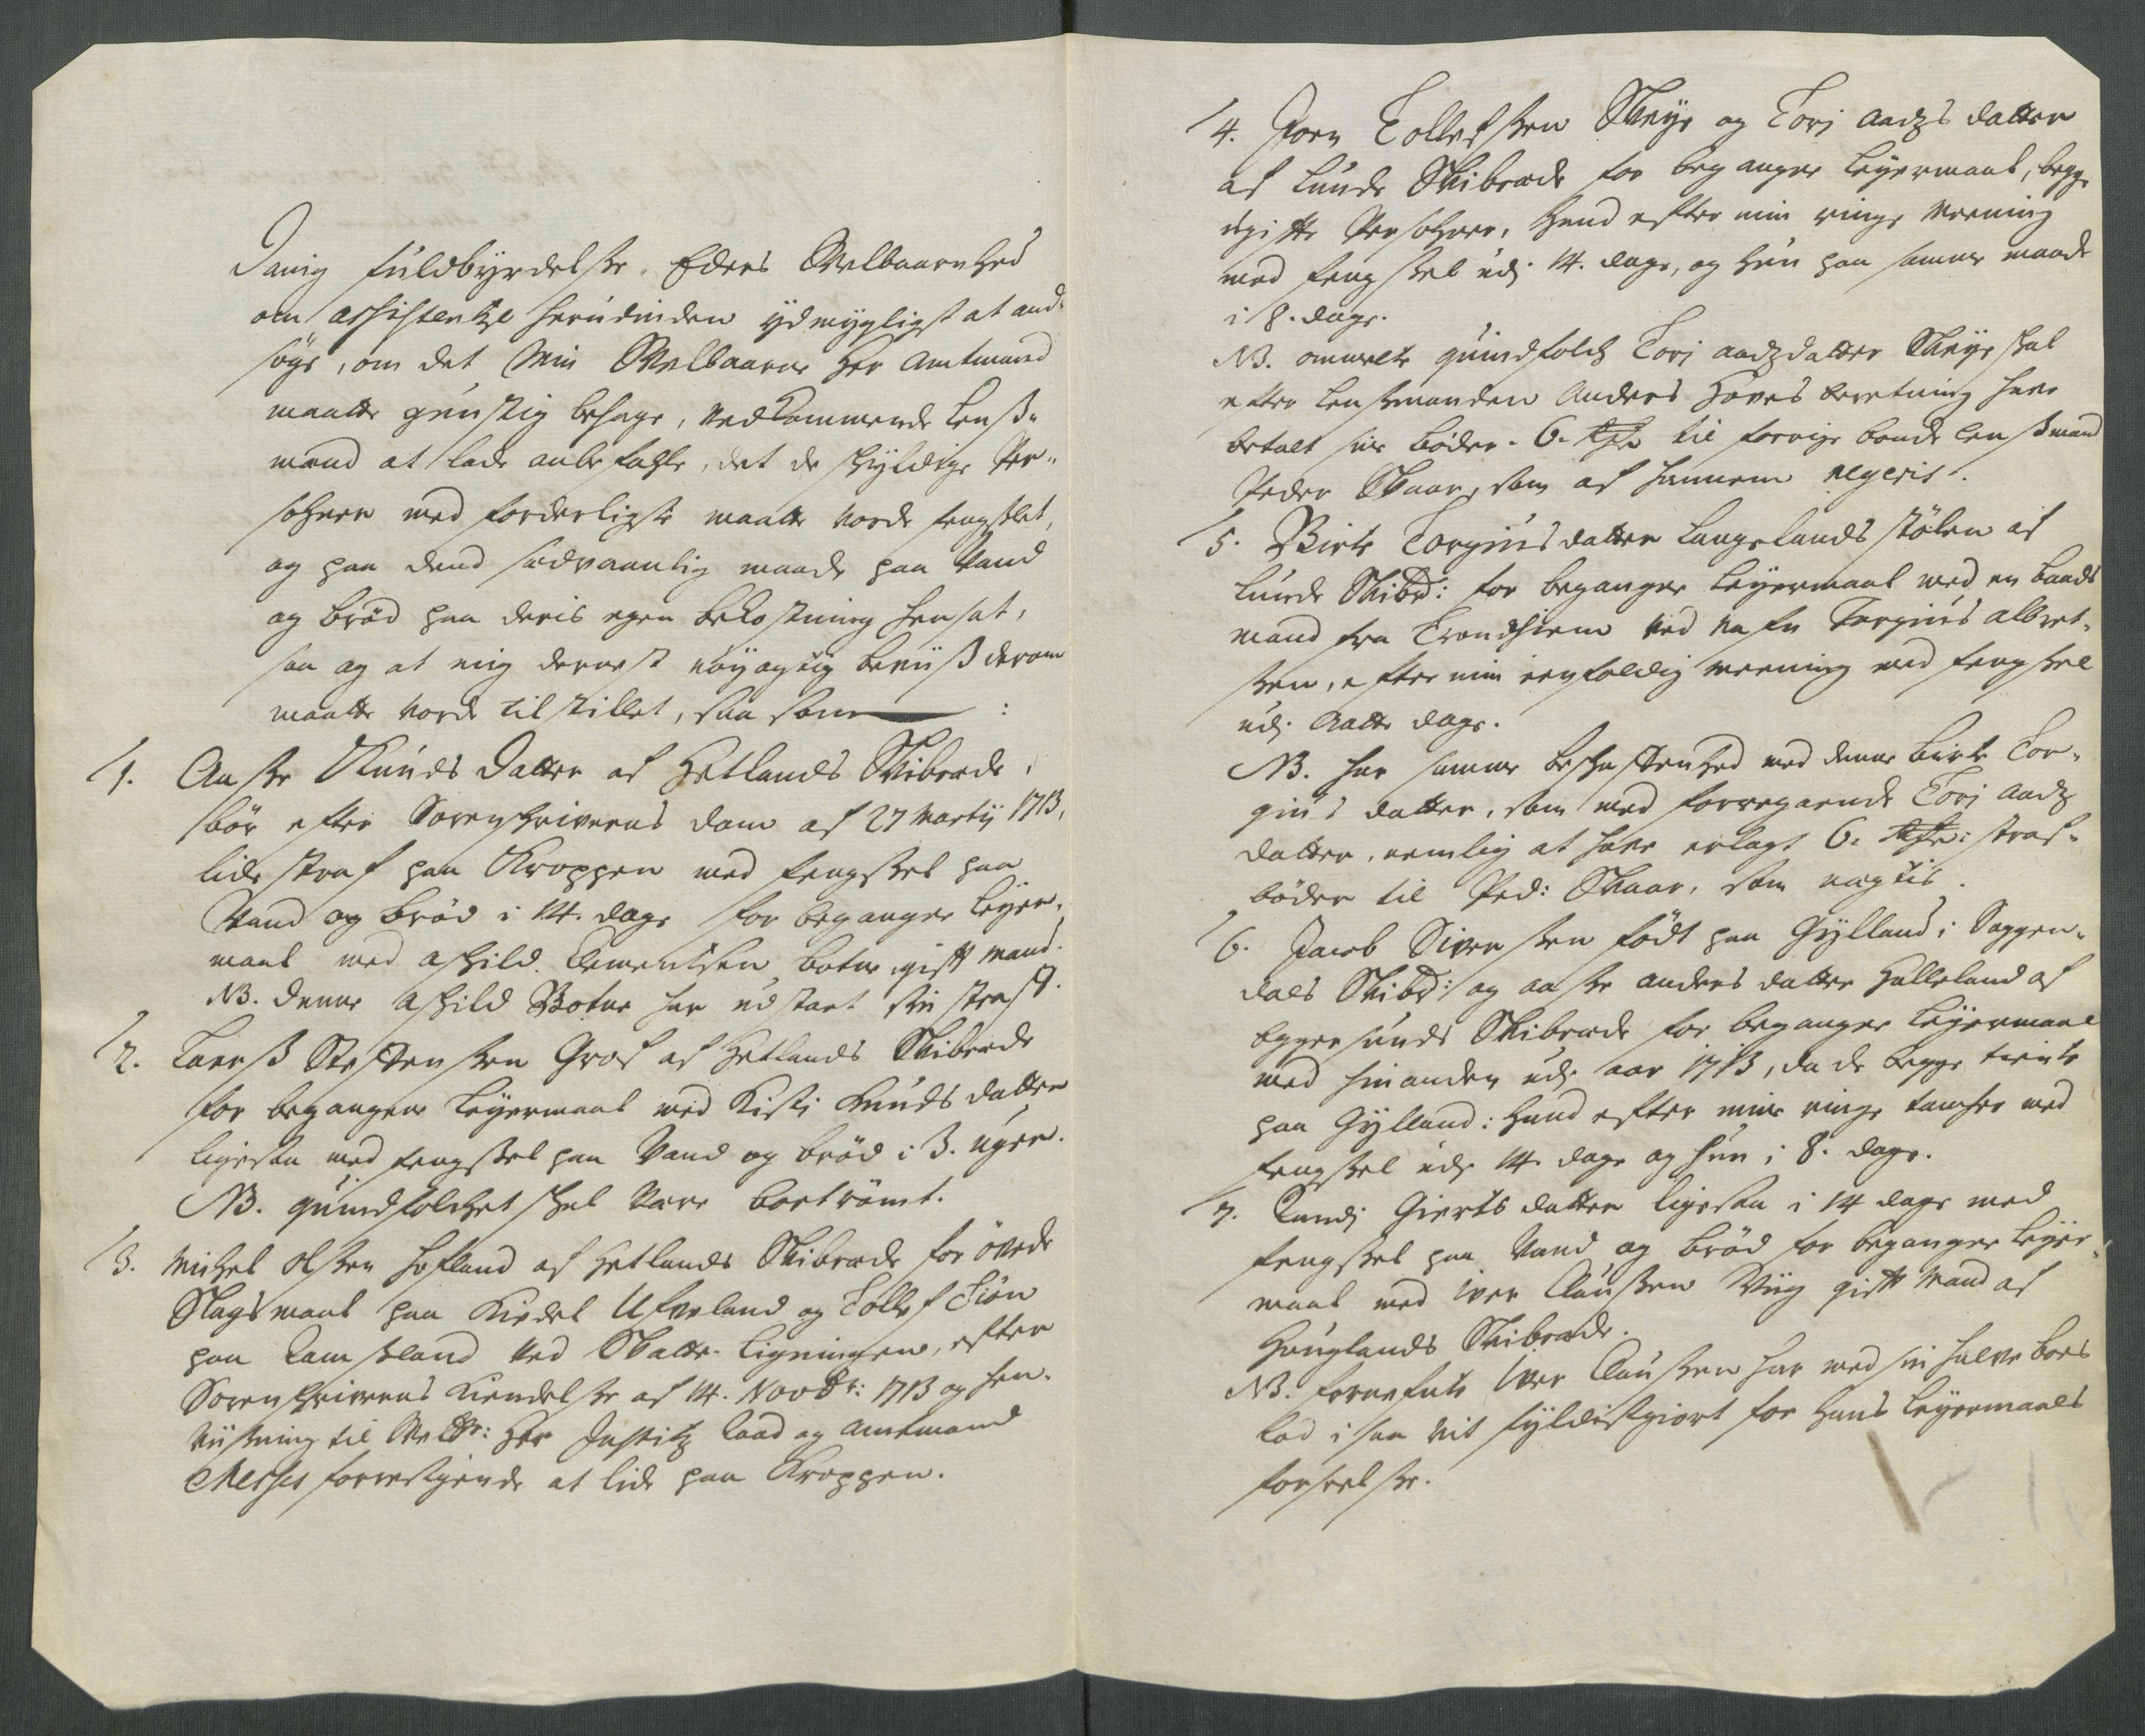 Damig fuldbyrdelsse, Eders Welbaarnhed
om assistentze herudinden ydmygligst at and-
søge, om det Min Welbaarne Her Amtmand
maatte gunstig behage, vedkommende Lenß-
mænd at lade anbefahle, det de schyldige Per-
sohner med forderligste maatte vorde fengslet,
og paa dend sædvaanlig maade paa Vand
og brød paa deris egen bekostning hensat,
saa og at mig dernest nøyagtig beviiß derom
maatte vorde tilstillet, saa som :
1. Aasse Knuds Datter af Hetlands Skibrede,
bør efter Sorenschriverens dom af 27 Martij 1713,
lide straf paa Kroppen med fengssel paa
Vand og brød i 14. dage for begangne Leyer-
maal med Aschild Clementsen Botne gift mand.
NB. denne Aschild Botne har udstaaet sin straff.
2. Laerß Steffensen Gros af Hetlands Skibrede
for begangene Leyermaal med Kisti Knuds datter
ligesaa med fengssel paa Vand og brød i 3. uger.
NB. quindfolchet skal være bortrømt.
3. Michel Olssen Hofland af Hetlands Skibrede for øvede
Slagsmaal paa Kiedel Ufveland og Tollef Tiøn
paa Lamsland ved Skatte-Ligningen, efter
Sorenschriverens Kiendelsse af 14. Novbr: 1713 og hen-
viisning til Welbr: Her Justitz Raad og Amtmand
de Tesches forrestgiende at lide paa Kroppen.
4. Joen Tollefssen Skeye og Tori Aadzdatter
af Lunde Skibrede for begangne Leyermaal, begge
ugifte Persohner, hand efter min ringe meening
med fengssel udj 14. dage, og hun paa samme maade
i 8. dage.
NB. ommelte quindfolch Tori Aadzdatter Skeye skal
efter Lensmanden Anders Hoves beretning have
betalt sine bøder 6. rdr til forrige bonde Lenßmand
Peder Skaar, som af hannem negeris.
5. Birte Torgiusdatter Langelandsstølen af
Lunde Skibd: for begangne Leyermaal med en baads
mand fra Trondhiem ved nafn Torgius Albret-
ssen, efter min eenfoldig meening med fengssel
udj Aatte dage.
NB. har samme beschaffenhed med denne Birte Tor-
gius datter, som med forregaaende Tori Aadz
datter, nemlig at have erlagt 6. rdr: straf-
bøder til Ped: Skaar, som nægtis.
6. Jacob Sivertssen født paa Gylland i Soggen-
dals Skibd: og Aasse Andersdatter Helleland af
Eggersunds Skibrede for begangne Leyermaal
med hinanden udj aar 1713, da de begge tiente
paa Gylland: Hand efter mine ringe tancher med
fengssel udj 14. dage og hun i 8. dage.
7. Randj Giertsdatter ligesaa i 14 dage med
fengssel paa Vand og brød for begangne Leyer-
maal med Iver Claussen Viig gift Mand af
Hauglands Skibrede.
NB. fornefnte Iver Claussen har med sin halve boes
lod i saa vit fyldistgiort for Hans Leyermaals
forseelsse.